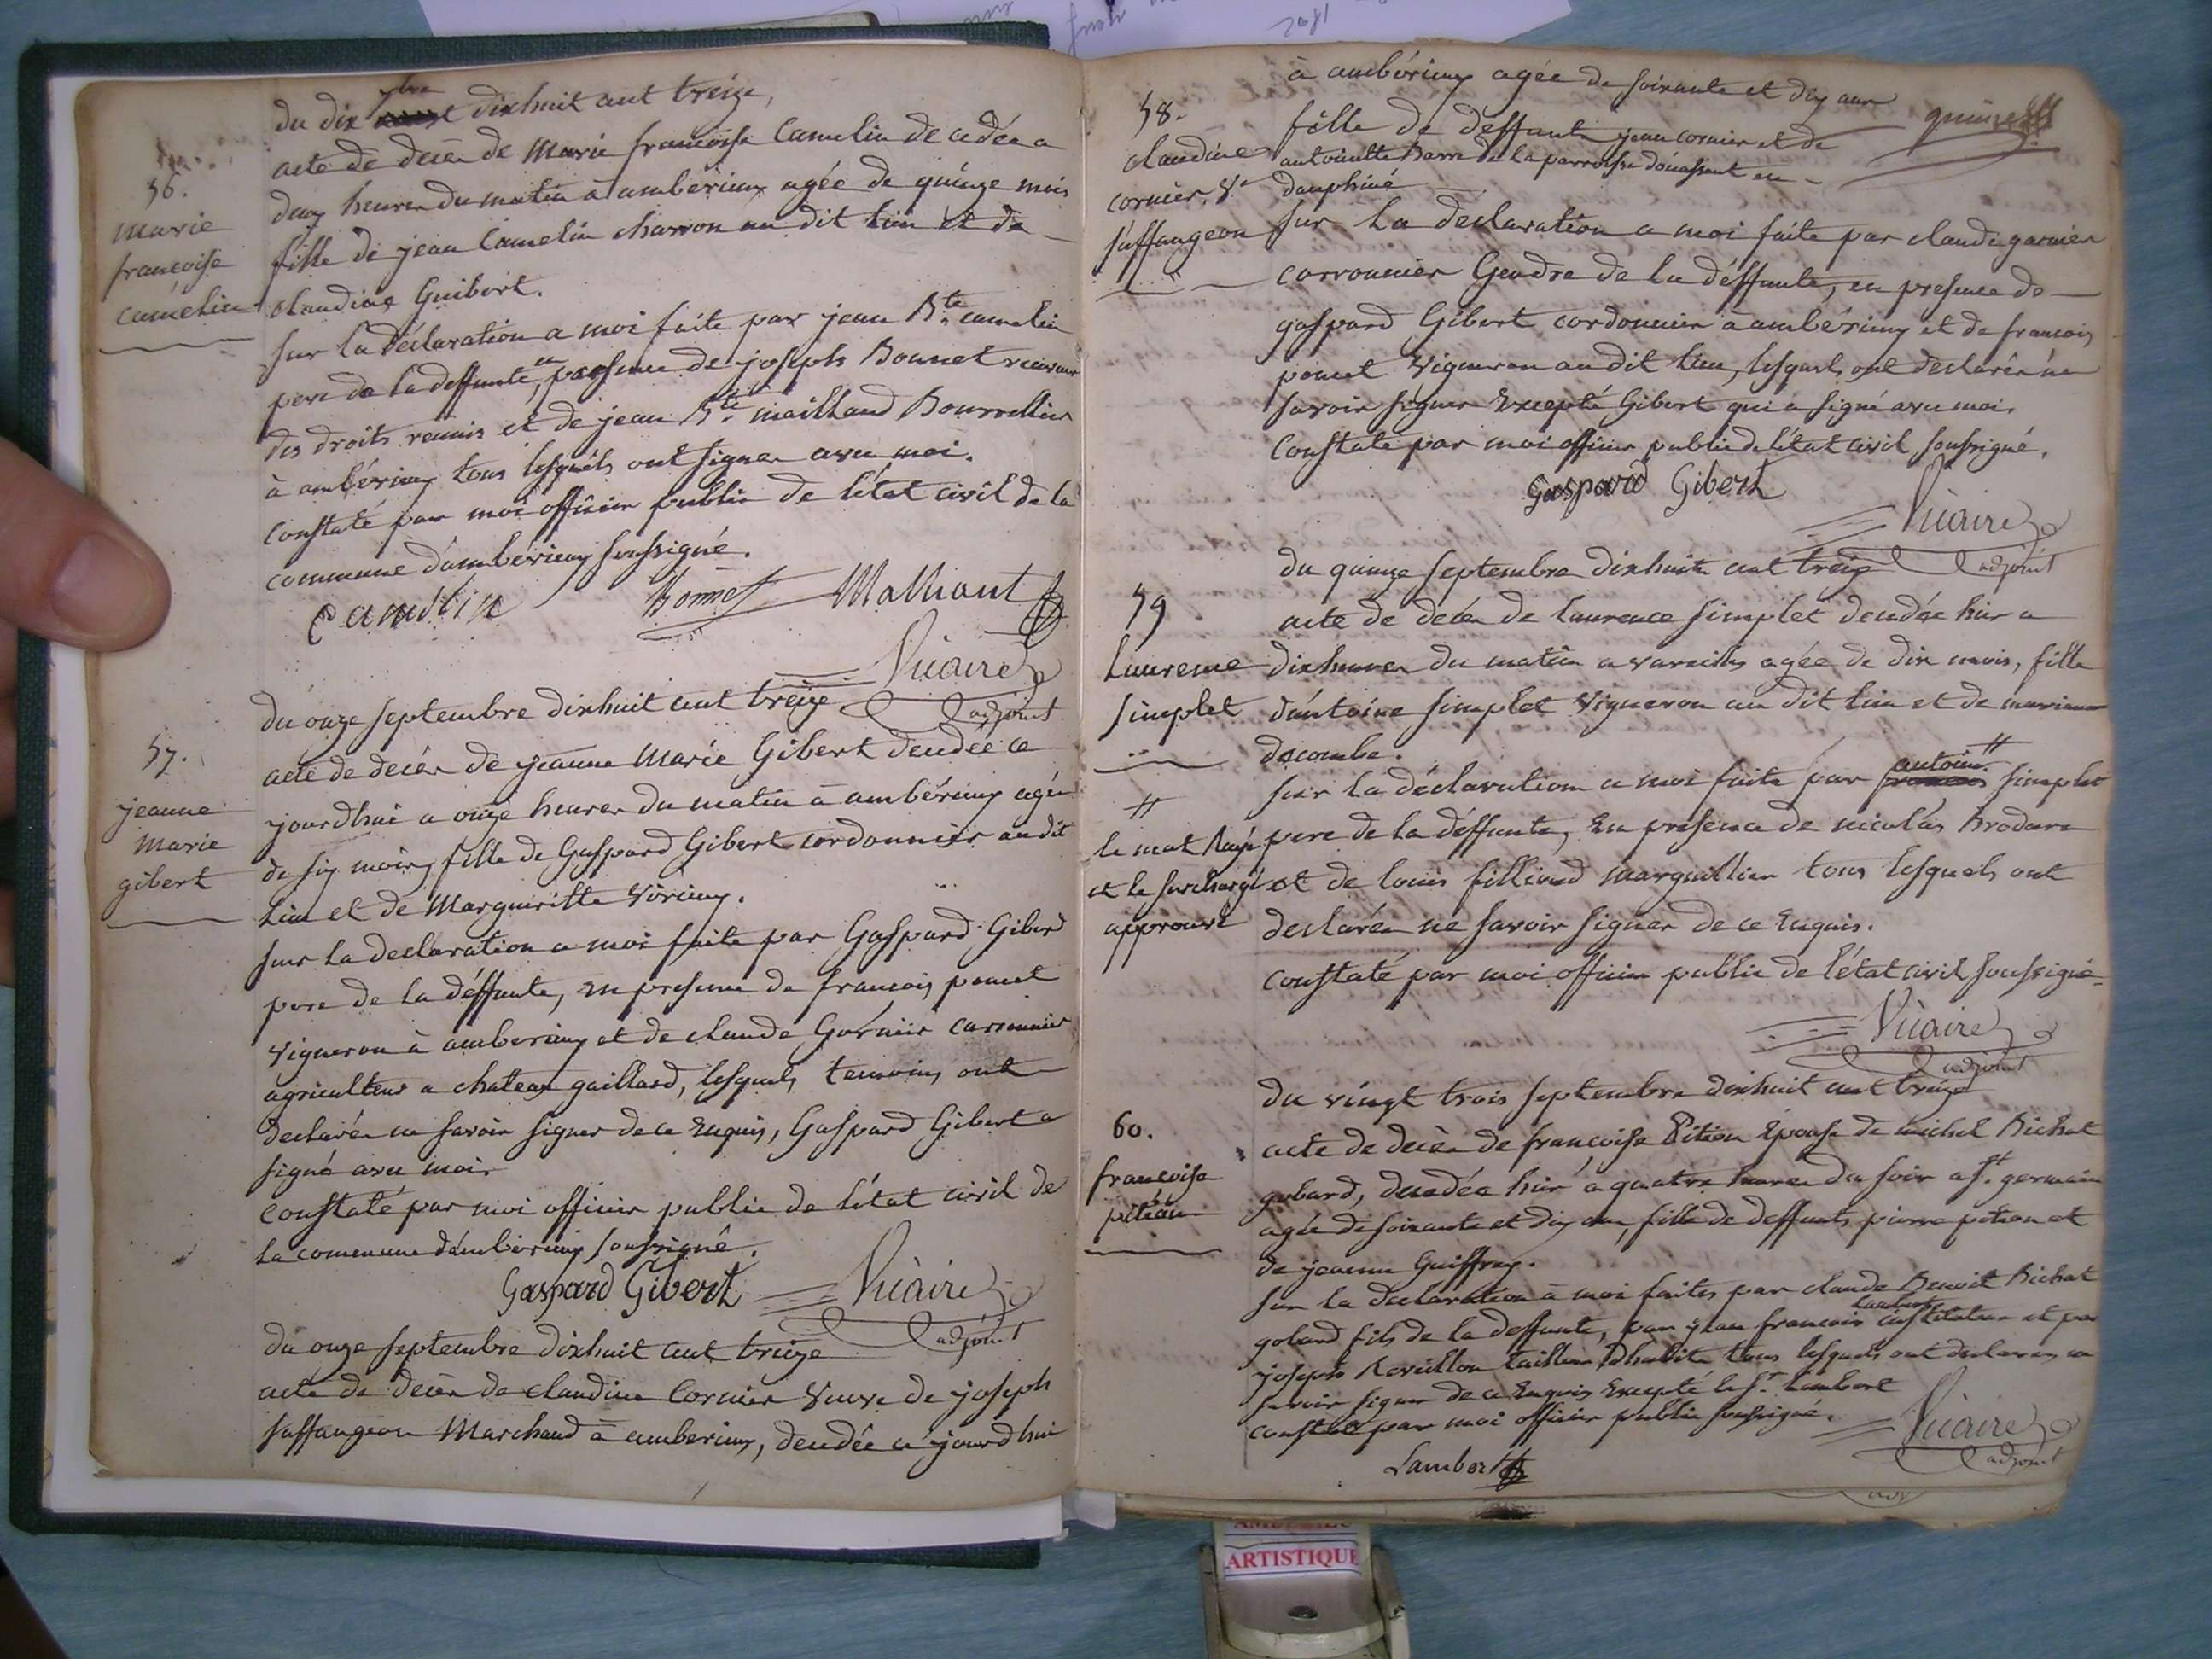 du dix 7bre dixhuit cent treize,
56.
marie
francoise
camélin
acte de décès de Marie francoise Camelin decedée a
deux heures du matin à ambérieux agée de quinze mois
fille de jean Camelin charron au dit lieu et de
claudine Guibert.
sur la déclaration a moi faite par jean Bte. camelin
pere de la deffunte, en presence de joseph Bonnet receveur
des droits reunis et de jean Bte. mailland Bourrellier
à ambérieux tous lesquels ont signer avec moi.
constaté par moi officier public de l'état civil de la
commune d'ambérieux soussigné.
Camelin Bonnet Malliant
Vicaire
adjoint
du onze septembre dixhuit cent treize.
57.
jeanne
marie
gibert
acte de décès de jeanne Marie Gibert decedée ce
jourdhui a onze heures du matin à ambérieux agée
de six mois, fille de Gaspard Gibert cordonnier au dit
lieu et de Marguiritte
sur la declaration a moi faite par Gaspard Giberd
pere de la déffunte, en presence de francois poncet
vigneron à amberieux et de claude Garnier carronnier
agriculteur a chateau gaillard, lesquels temoins ont
declarés ne savoir signer de ce Enquis, Gaspard Gibert a
signé avec moi.
constaté par moi officier public de l'état civil de
la commune d'ambérieux soussigné.
Gaspard Gibert Vicaire
adjoint
du onze septembre dixhuit cent treize
acte de décès de claudine Cornier veuve de joseph
saffangeon Marchand à amberieux, decedée ce jourdhui
à ambérieux agée de soixante et dix ans
58.
claudine
cornier Ve
saffangeon
fille de deffunts jean cornier et de
antoinette Barre de la parroisse en
dauphiné
sur la declaration a moi faite par claude garnier
carronnier Gendre de la déffunte, en presence de
gaspard Gibert cordonnier à ambérieux et de francois
poncet vigneron au dit lieu, lesquels ont declarés ne
savoir signer Excepté Gibert qui a signé avec moi.
constaté par moi officier public de l'état civil soussigné.
Gaspard Gibert
Vicaire
adjoint
du quinze septembre dixhuit cent treize
59
Laurence
simplet
acte de décès de laurence simplet decedée hier a
dix heures du matin a vareilles agée de dix mois, fille
d'antoine simplet vigneron au dit lieu et de marianne
decombe.
sur la déclaration a moi faite par antoine simplet
le mot Rayé
et le surchargé
approuvé
pere de la déffunte, En présence de nicolas Brodare
et de louis filliard marguillier tous lesquels ont
declarés ne savoir signer de ce Enquis.
constaté par moi officier public de l'état civil soussigné
Vicaire
adjoint
du vingt trois septembre dixhuit cent treize
60.
francoise
pition
acte de décès de francoise Pition Epouse de michel Bichat
gobard, decedée hier à quatre heures du soir a st. germain
agée de soixante et dix ans, fille de deffunts pierre pition et
de jeanne Guiffrey.
sur la declaration à moi faites par claude Benoit Bichat
gobard fils de la deffunte, par jean francois Lambert instituteur et par
joseph Revillon tailleur d'habits tous lesquels ont declarés ne
savoir signer de ce Enquis Excepté le sr. Lambert
constaté par moi officier public soussigné.
Vicaire
adjoint
Lambert
ARTISTIQUE